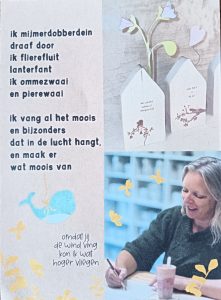 ik mijmerdobberdein
draaf door
ik flierefluit
lanterfant
ik ommezwaai
en pierewaai
ik vang al het moois
en bijzonders
dat in de lucht hangt,
en maak er
wat moois van
omdat jij
de wind ving
kon ik wat
hoger vliegen